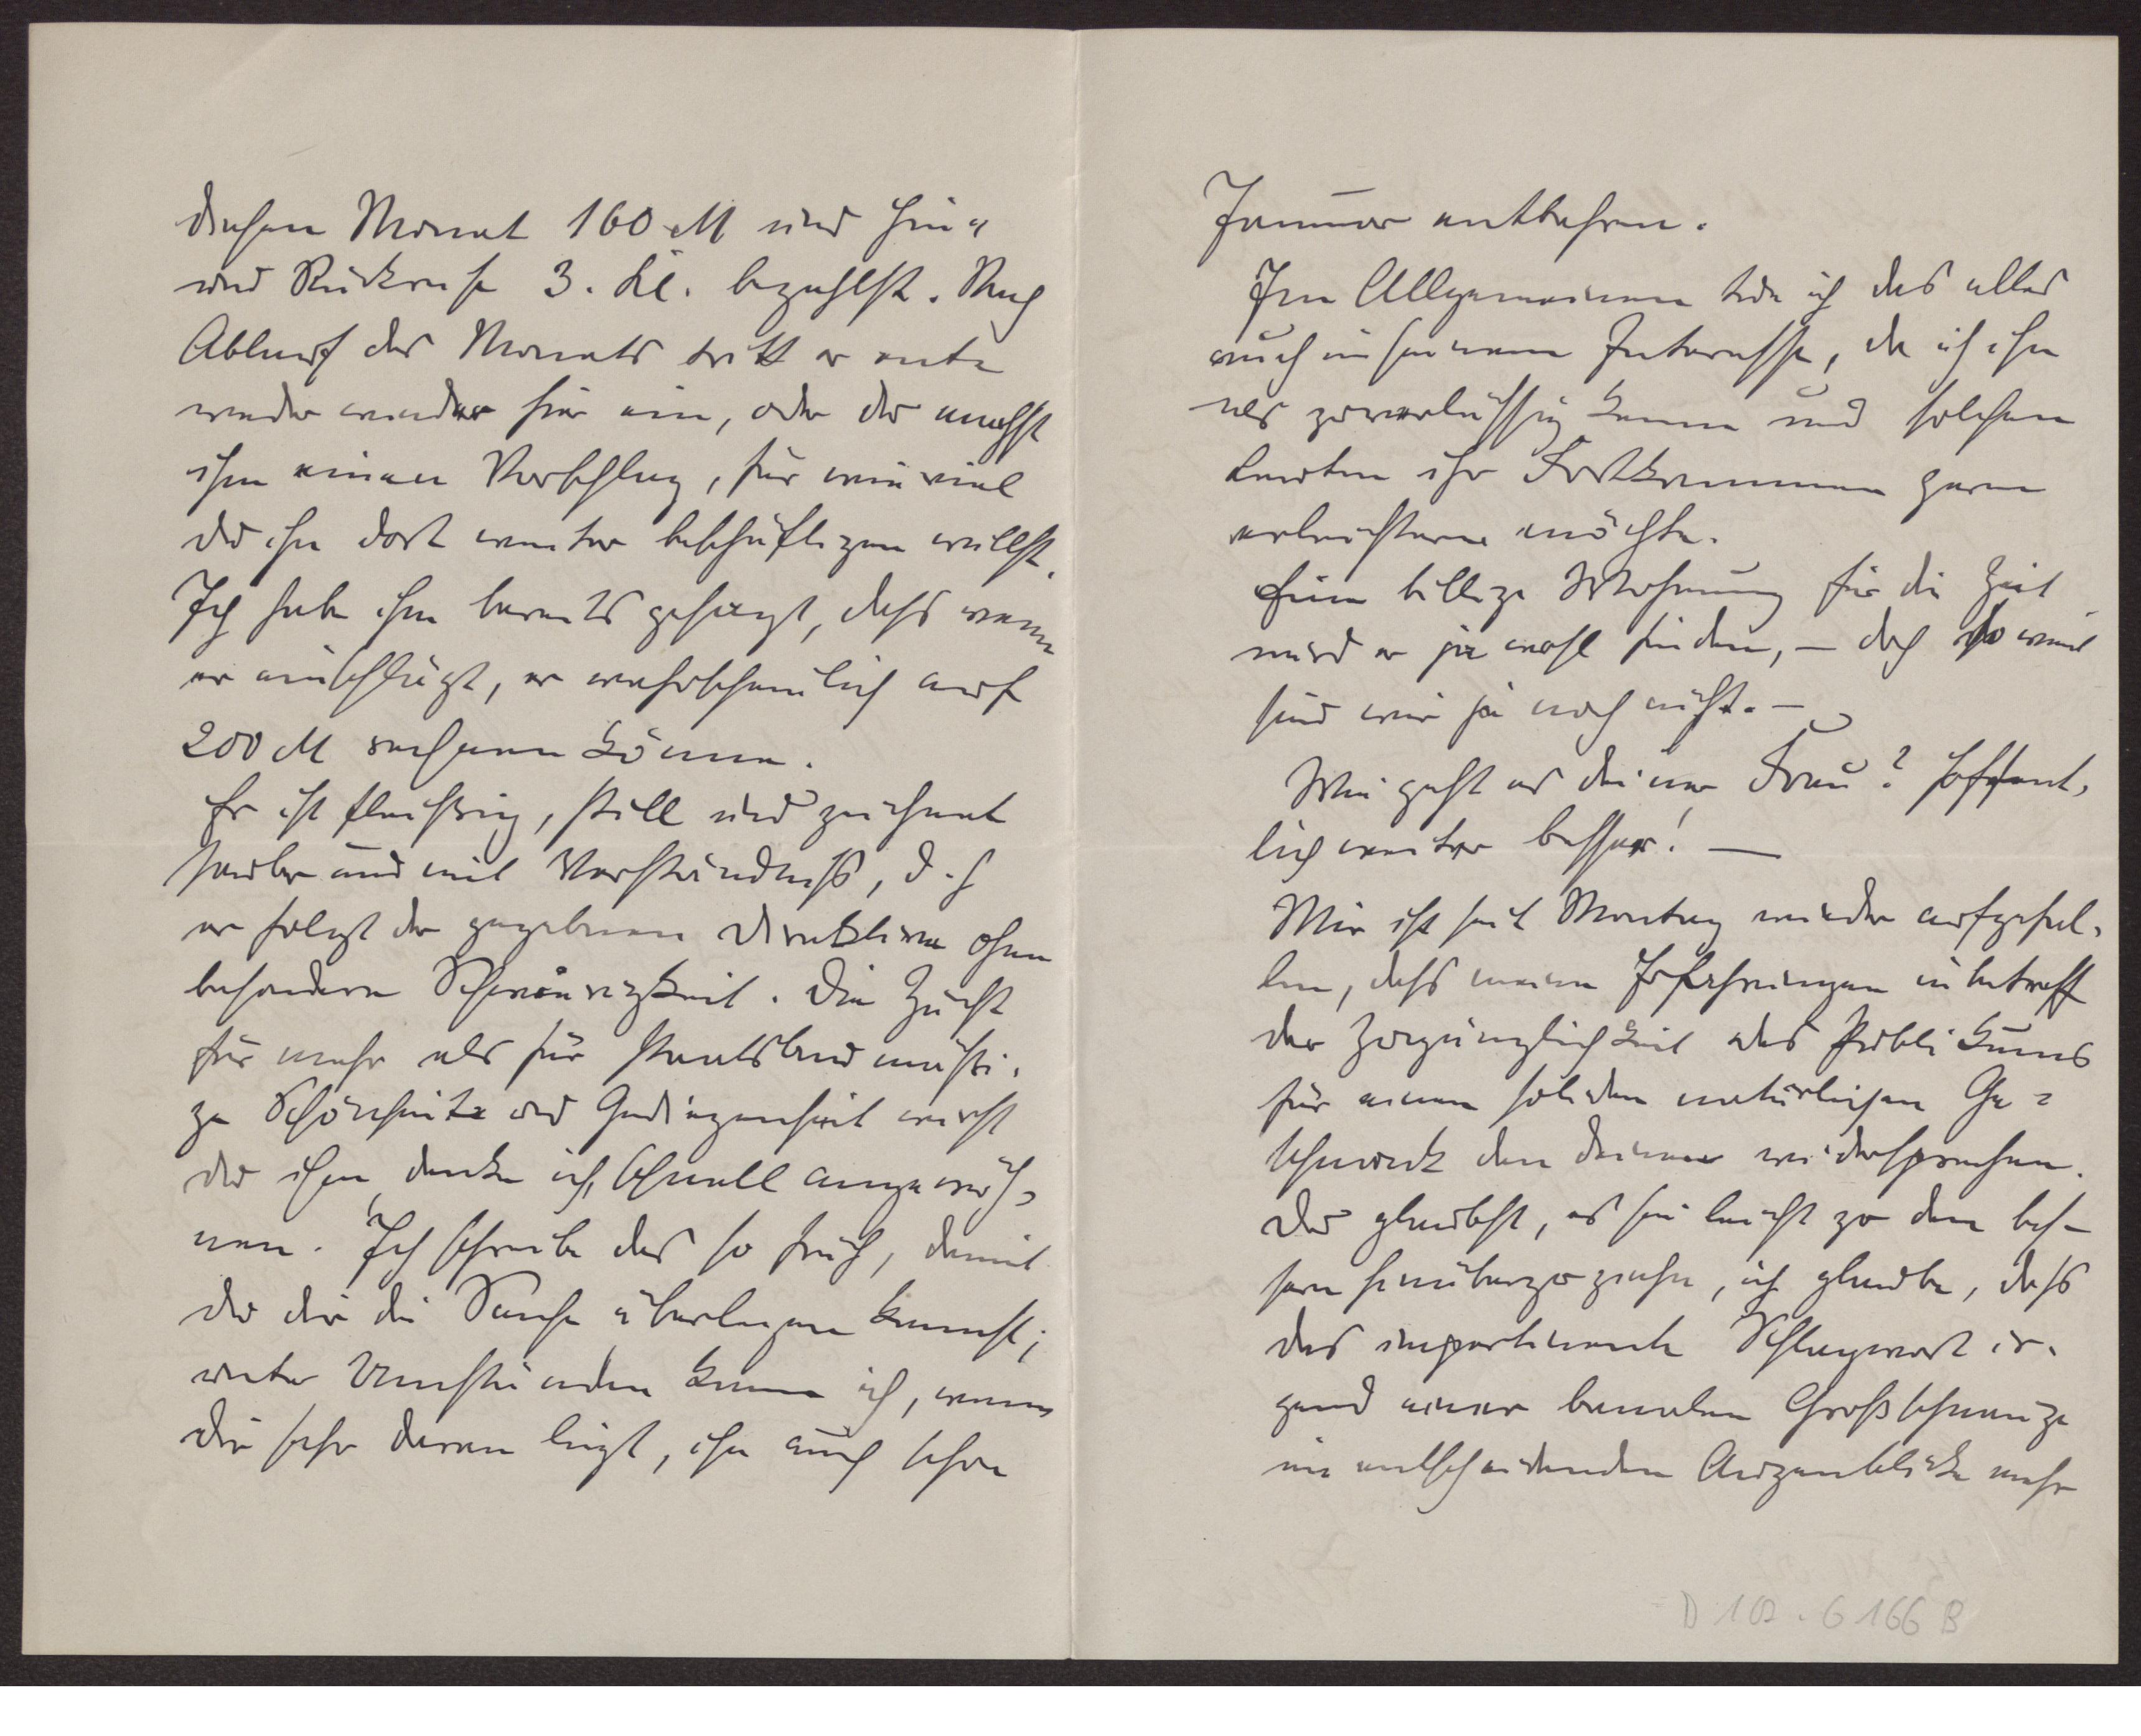 diesen Monat 160 M und Hin-
und Rückreise 3. Kl. bezahlst. Nach
Ablauf des Monats tritt er ent-
weder wieder hier ein, oder du machst
ihm einen Vorschlag, für wieviel
du ihn dort weiter beschäftigen willst.
Ich habe ihm bereits gesagt, dass wenn
er einschlägt, er wahrscheinlich auf
200 M rechnen könne.
Er ist fleissig, still und zeichnet
sauber und mit Verständniss, d. h
er folgt der gegebenen Direktive ohne
besondere Schwierigkeit. Die Zucht
für mehr als für staatsbaumässi-
ge Schönheit und Gediegenheit wirst
du ihm, denke ich, schnell angewöh-
nen. Ich schreibe das so früh, damit
du dir die Sache überlegen kannst;
unter Umständen kann ich, wenn
dir sehr daran liegt, ihn auch schon
Januar entbehren.
Im Allgemeinen tue ich das alles
auch in seinem Interesse, da ich ihn
als zuverlässig kenne und solchen
Leuten ihr Fortkommen gern
erleichtern möchte.
Eine billige Wohnung für die Zeit
wird er ja wohl finden, – doch so weit
sind wir ja noch nicht. –
Wie geht es deiner Frau? Hoffent-
lich weiter besser! –
Mir ist seit Montag wieder aufgefal-
len, dass meine Erfahrungen in betreff
der Zugänglichkeit des Publikums
für einen soliden natürlichen Ge-
schmack den deinen widersprechen.
Du glaubst, es sei leicht zu dem bes-
sern hinüberzuziehn, ich glaube, dass
das impertinente Schlagwort ir-
gend einer banalen Großschnauze
im entscheidenden Augenblicke mehr
D 102. 6166 B